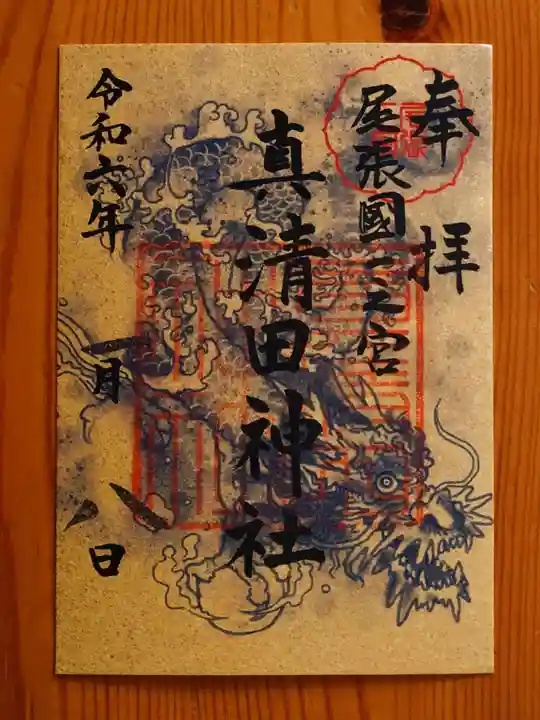 奉拝
尾張國一之宮
真清田神社
令和六年
一月
八日